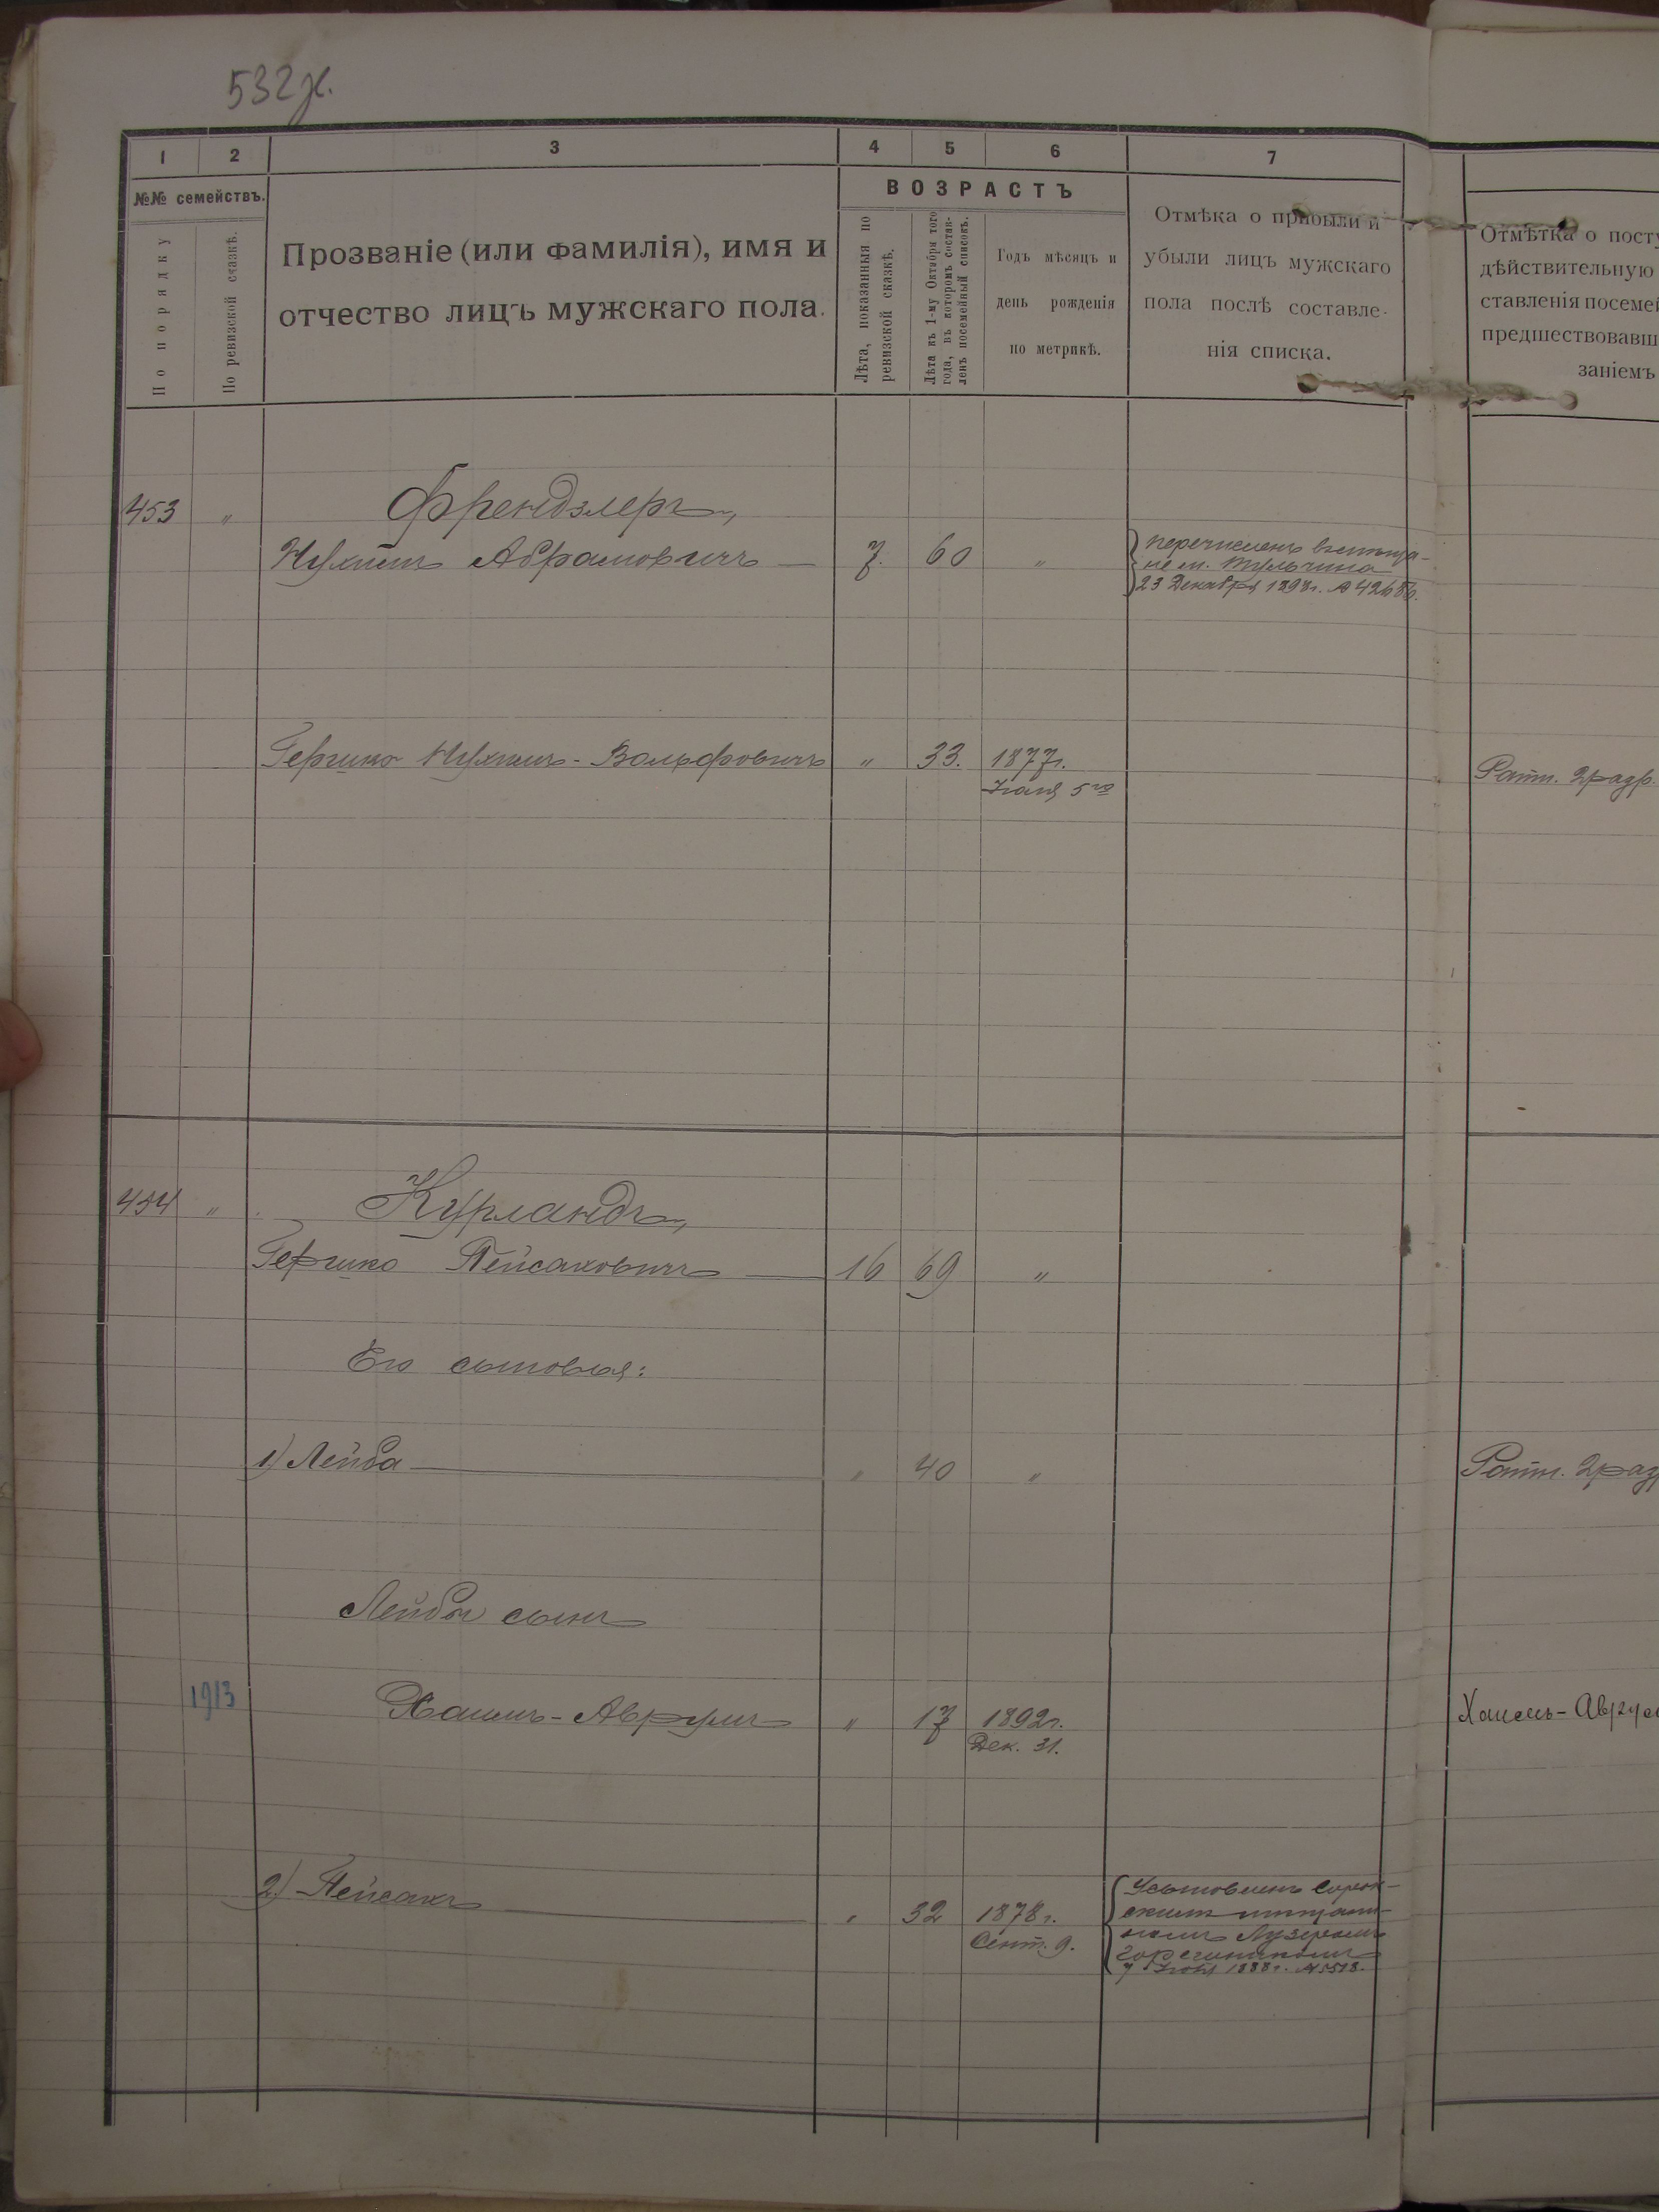 532 ж.
1 2 3 4 5 6 7
№№ семействъ.
По порядку
По ревизской сказкѣ.
Прозваніе (или фамилія), имя и
отчество лицъ мужскаго пола.
ВОЗРАСТЪ
Лѣта, показанныя по
ревизской сказкѣ.
Лѣта къ 1-му Октября того
года, въ которомъ состав-
ленъ посемейный списокъ.
Годъ мѣсяцъ и
день рожденія
по метрикѣ.
Отмѣка о прибыли и
убыли лицъ мужскаго
пола послѣ составле-
нія списка.
Отмѣтка о посту
дѣйствительную
ставленія посемей
предшествовавш
заніемъ
453 " Френдзлеръ,
Нухимъ Абрамовичъ — 7. 60 "
перечисленъ въ мѣща-
не м. Тульчина
23 Декабря 1898г. № 42686.
Гершко Нухимъ-Вольфовичъ " 33. 1877г.
5го
Ратн. 2 разр.
454 " Курландъ,
Гершко Пейсаховичъ — 16 69 "
Его сыновья:
1) Лейба — " 40 "
Ратн. 2 раз
Лейбы сынъ
1913 Хаимъ-Аврумъ " 17 1892г.
Дек. 31.
Хаимъ-Аврум
2) Пейсахъ — " 32 1878г.
Сент. 9.
Усыновленъ Сорок-
скимъ мѣщани-
номъ Лузеромъ
1888г. №